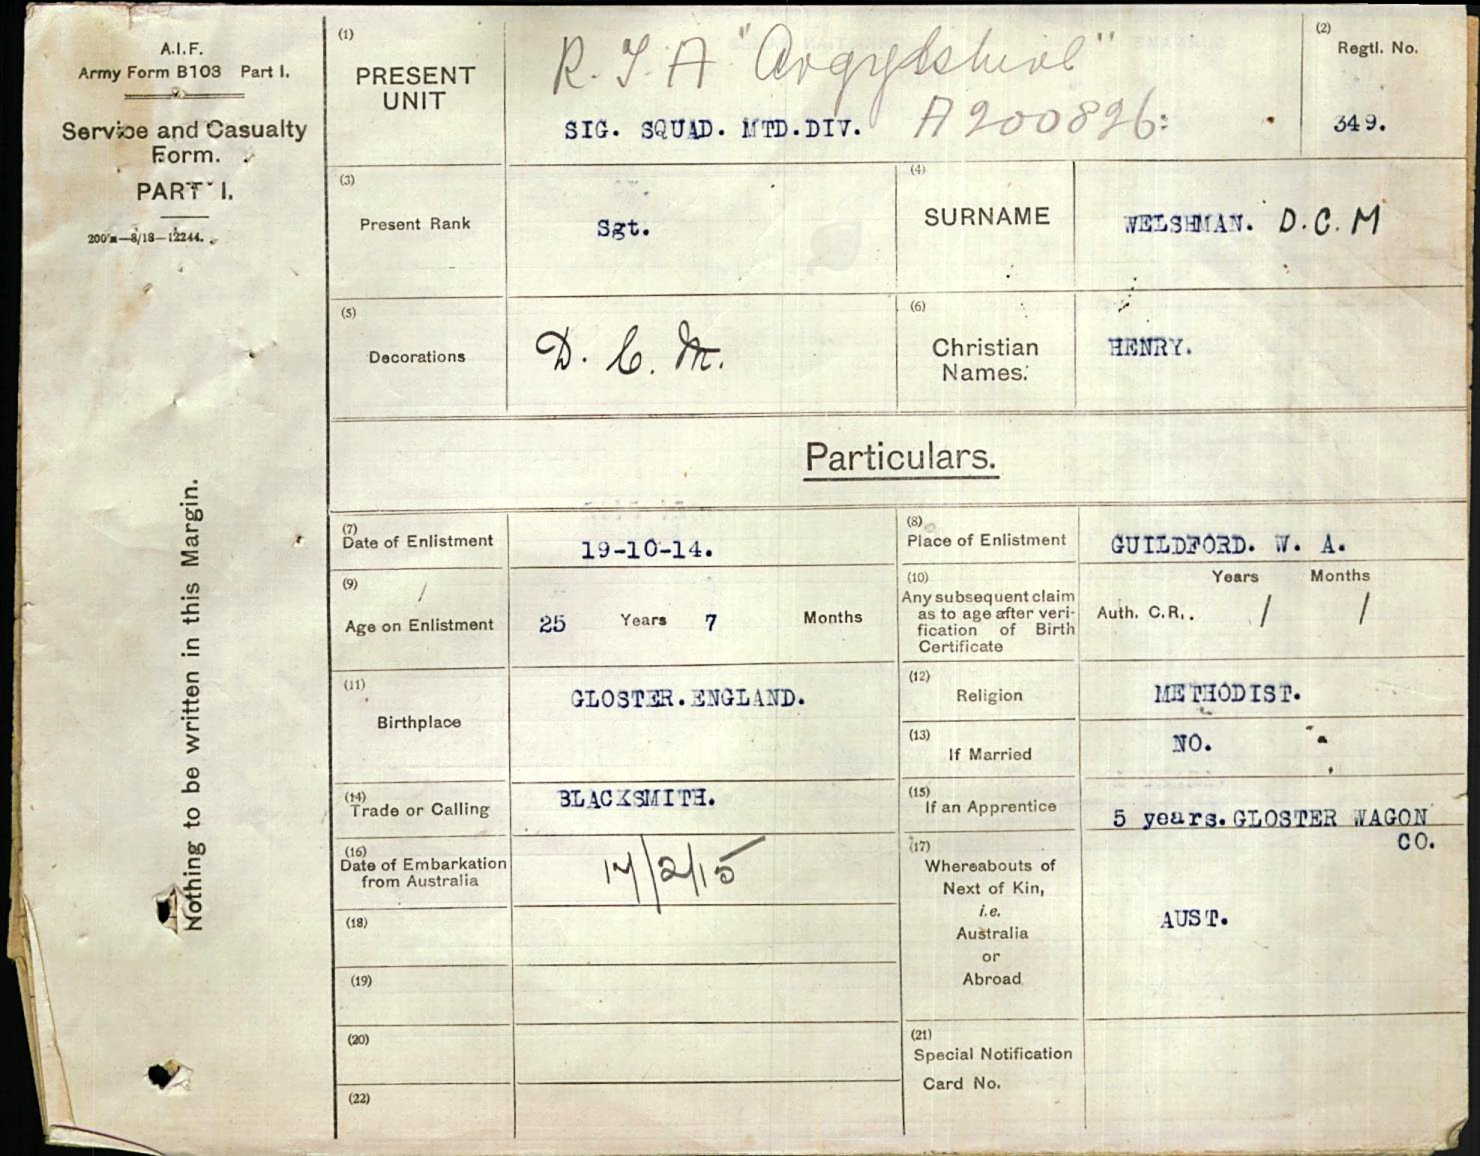 A.I.F.
Army Form B103 Part I.
Service and Casualty
Form.
PART I.
200m—8/18—12244.
Nothing to be written in this Margin.
(1)
PRESENT
UNIT
R.T.A "Argyllshire"
SIG. SQUAD. MTD.DIV. A200826
(2)
Regtl. No.
349.
(3)
Present Rank
Sgt.
(4)
SURNAME
WELSHMAN. D.C.M
(5)
Decorations
D.C.M.
(6)
Christian
Names.
HENRY.
Particulars.
(7)
Date of Enlistment
19-10-14.
(8)
Place of Enlistment
GUILDFORD. W. A.
(9)
Age on Enlistment
25 Years 7 Months
(10)
Any subsequent claim
as to age after veri-
fication of Birth
Certificate
Years Months
Auth. C.R. / /
(11)
Birthplace
GLOSTER.ENGLAND.
(12)
Religion
METHODIST.
(13)
If Married
NO.
(14)
Trade or Calling
BLACKSMITH.
(15)
If an Apprentice
5 years.GLOSTER WAGON
CO.
(16)
Date of Embarkation
from Australia
17/2/15
(17)
Whereabouts of
Next of Kin,
i.e.
Australia
or
Abroad
AUST.
(18)
(19)
(20)
(21)
Special Notification
Card No.
(22)